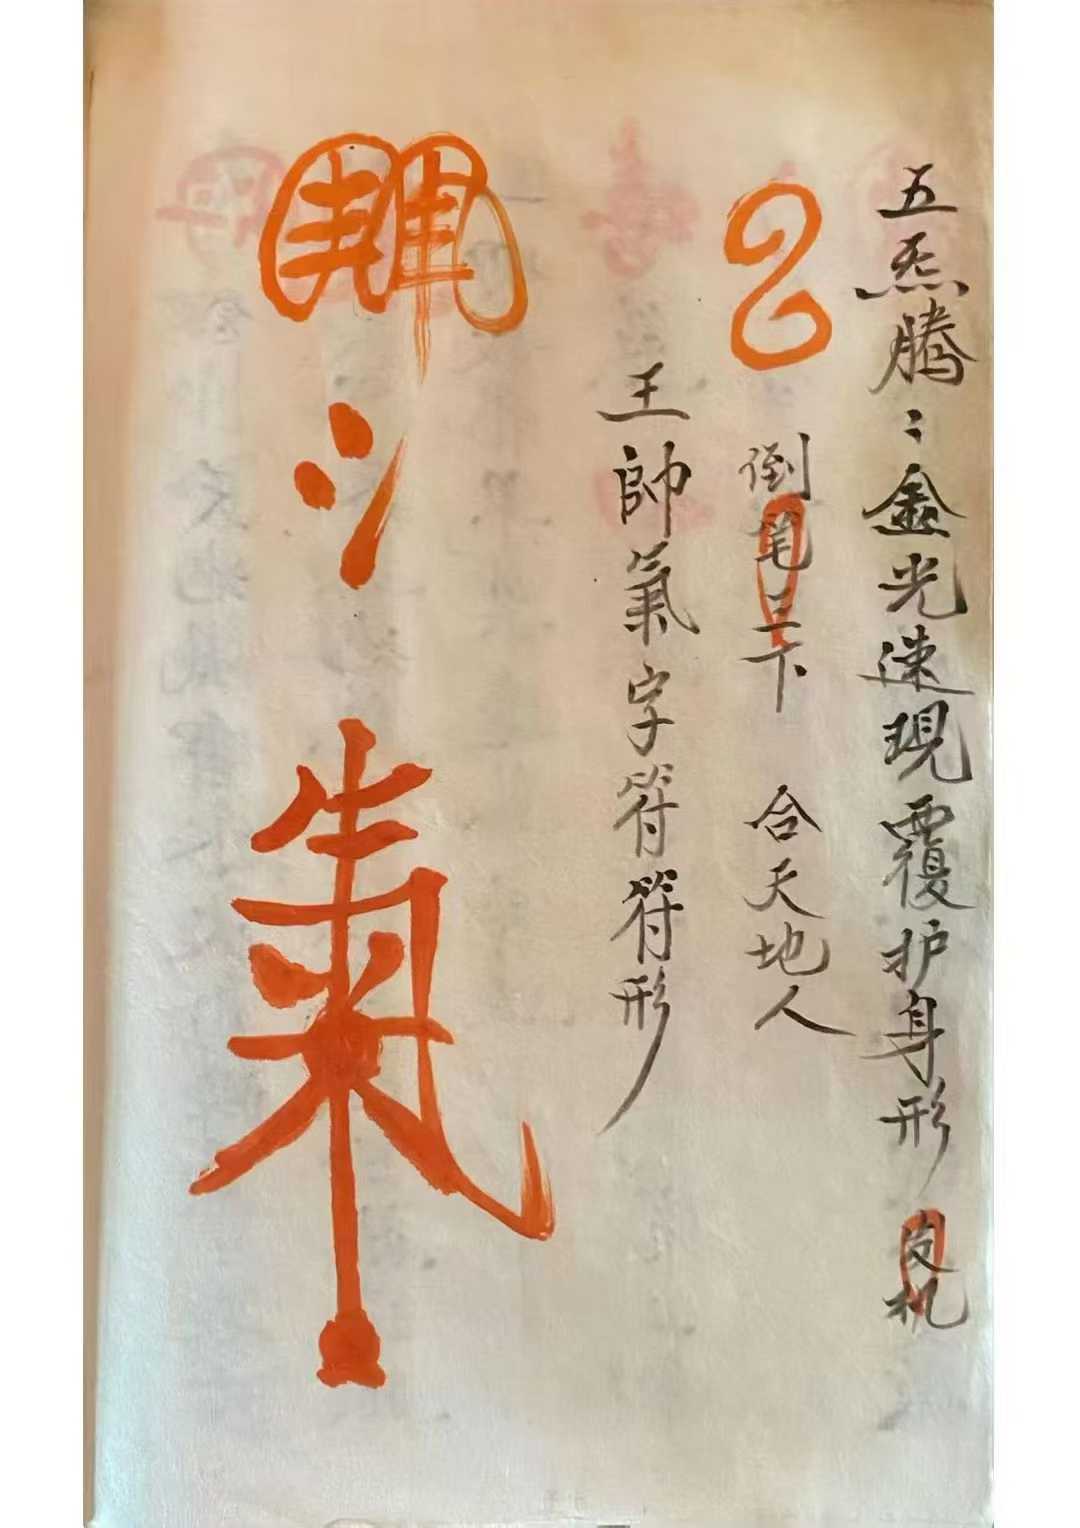 五炁腾〻金光速現覆护身形
倒笔三下 合天地人
王帥氣字符符形
氣